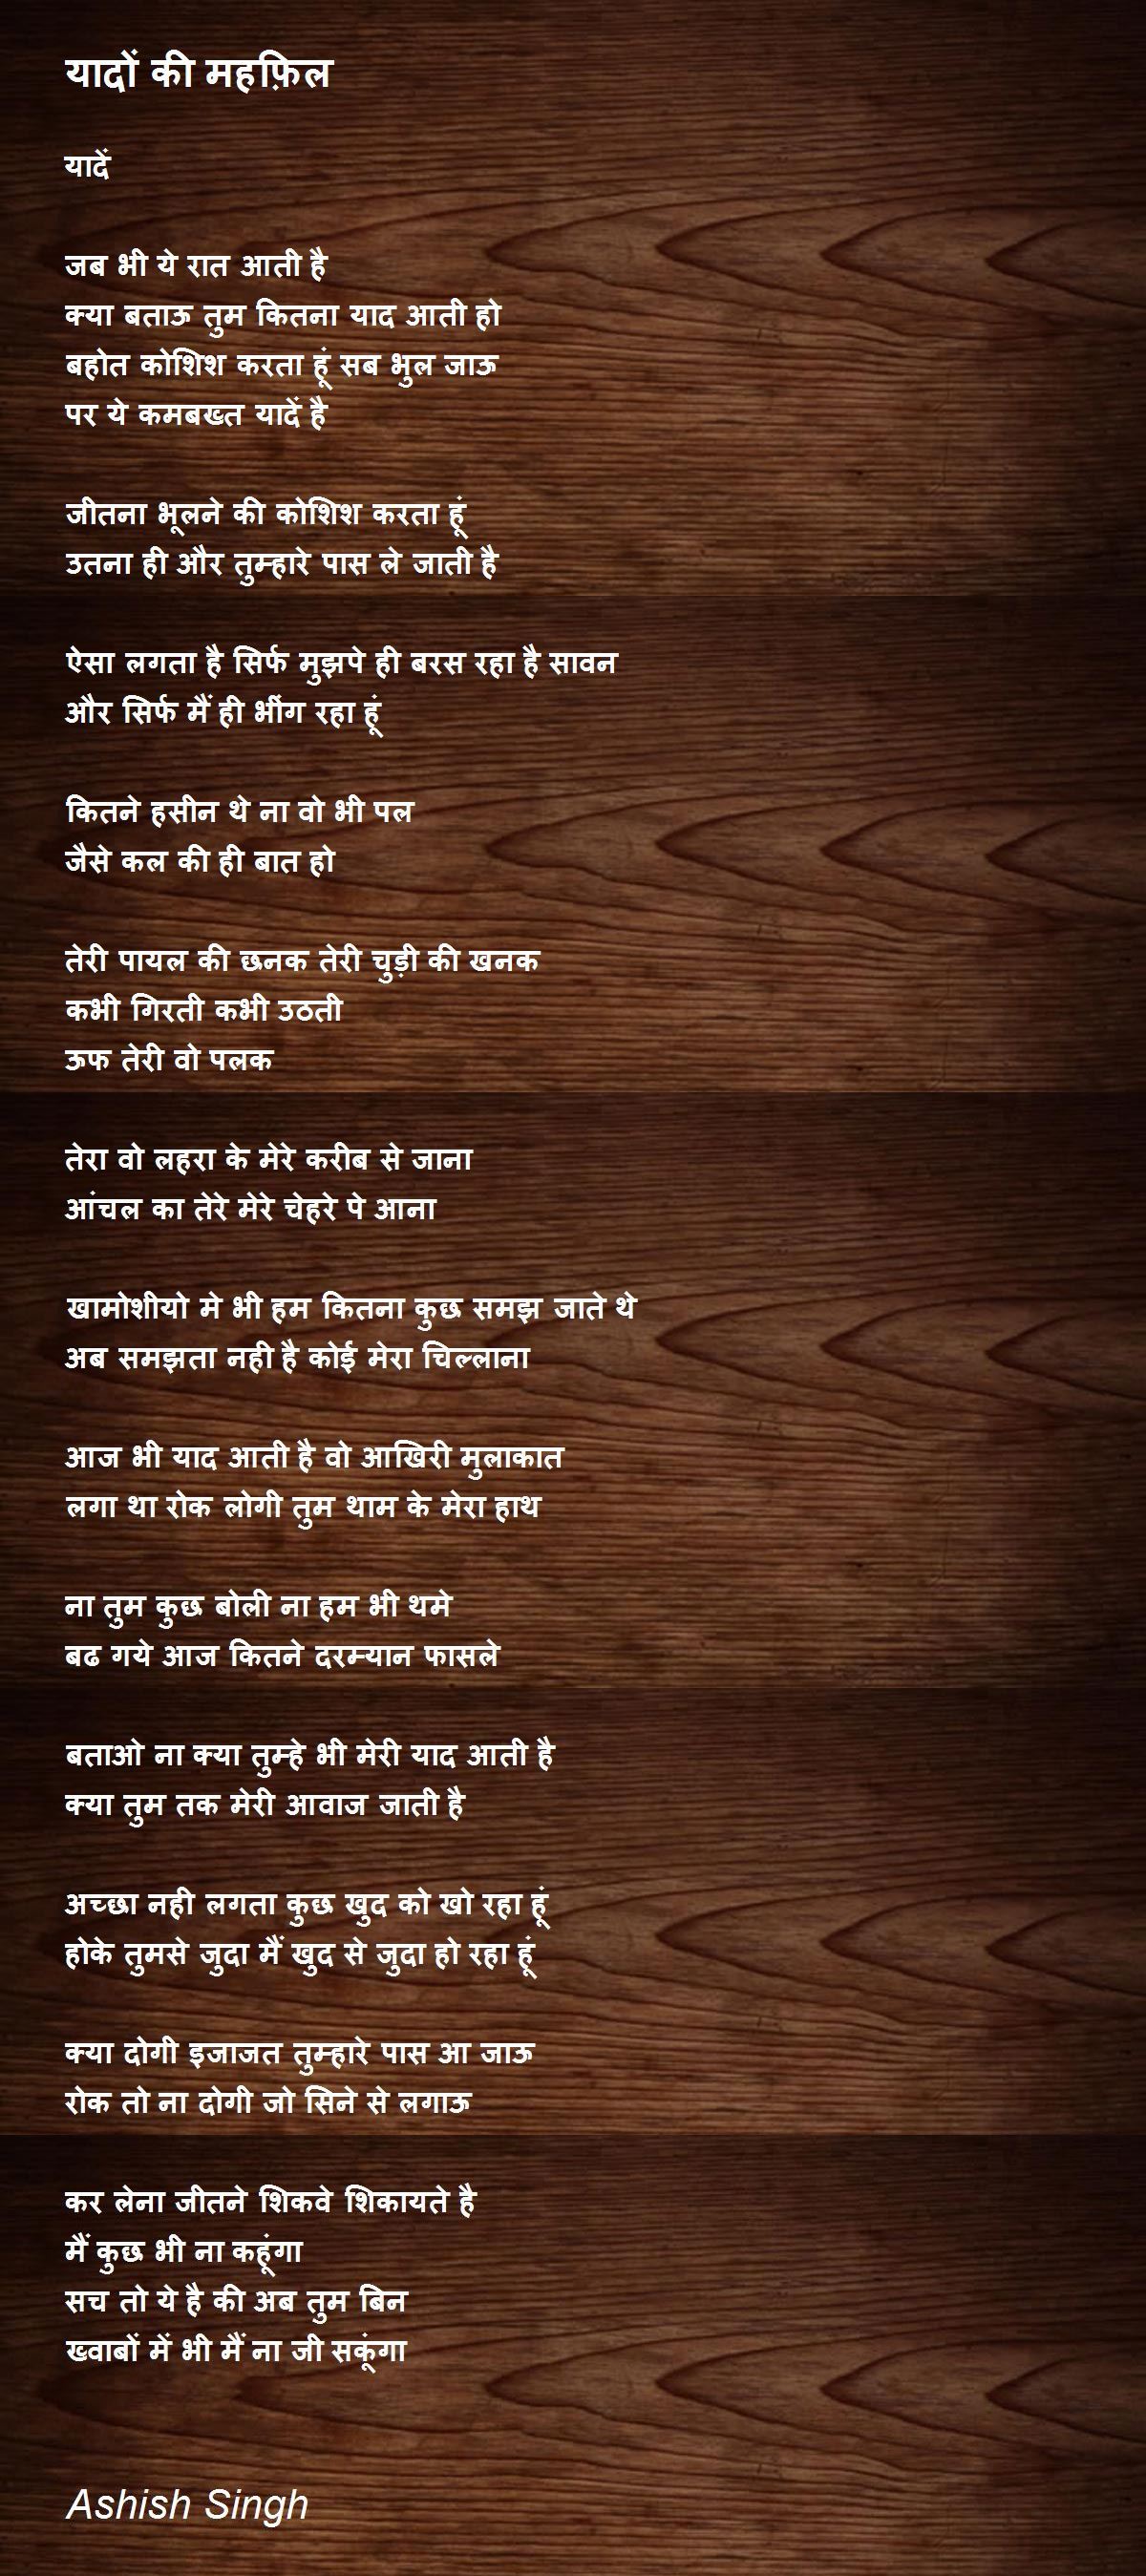 यादों की महफ़िल
यादें
जब भी ये रात आती है
क्या बताऊ तुम कितना याद आती हो
बहोत कोशिश करता हूं सब भुल जाऊ
पर ये कमबख्त यादें है
जीतना भूलने की कोशिश करता हूं
उतना ही और तुम्हारे पास ले जाती है
ऐसा लगता है सिर्फ मुझपे ही बरस रहा है सावन
और सिर्फ मैं ही भींग रहा हूं
कितने हसीन थे ना वो भी पल
जैसे कल की ही बात हो
तेरी पायल की छनक तेरी चुड़ी की खनक
कभी गिरती कभी उठती
ऊफ तेरी वो पलक
तेरा वो लहरा के मेरे करीब से जाना
आंचल का तेरे मेरे चेहरे पे आना
खामोशीयो मे भी हम कितना कुछ समझ जाते थे
अब समझता नही है कोई मेरा चिल्लाना
आज भी याद आती है वो आखिरी मुलाकात
लगा था रोक लोगी तुम थाम के मेरा हाथ
ना तुम कुछ बोली ना हम भी थमे
बढ गये आज कितने दरम्यान फासले
बताओ ना क्या तुम्हे भी मेरी याद आती है
क्या तुम तक मेरी आवाज जाती है
अच्छा नही लगता कुछ खुद को खो रहा हूं
होके तुमसे जुदा मैं खुद से जुदा हो रहा हूं
क्या दोगी इजाजत तुम्हारे पास आ जाऊ
रोक तो ना दोगी जो सिने से लगाऊ
कर लेना जीतने शिकवे शिकायते है
मैं कुछ भी ना कहूंगा
सच तो ये है की अब तुम बिन
ख्वाबों में भी मैं ना जी सकूंगा
Ashish Singh